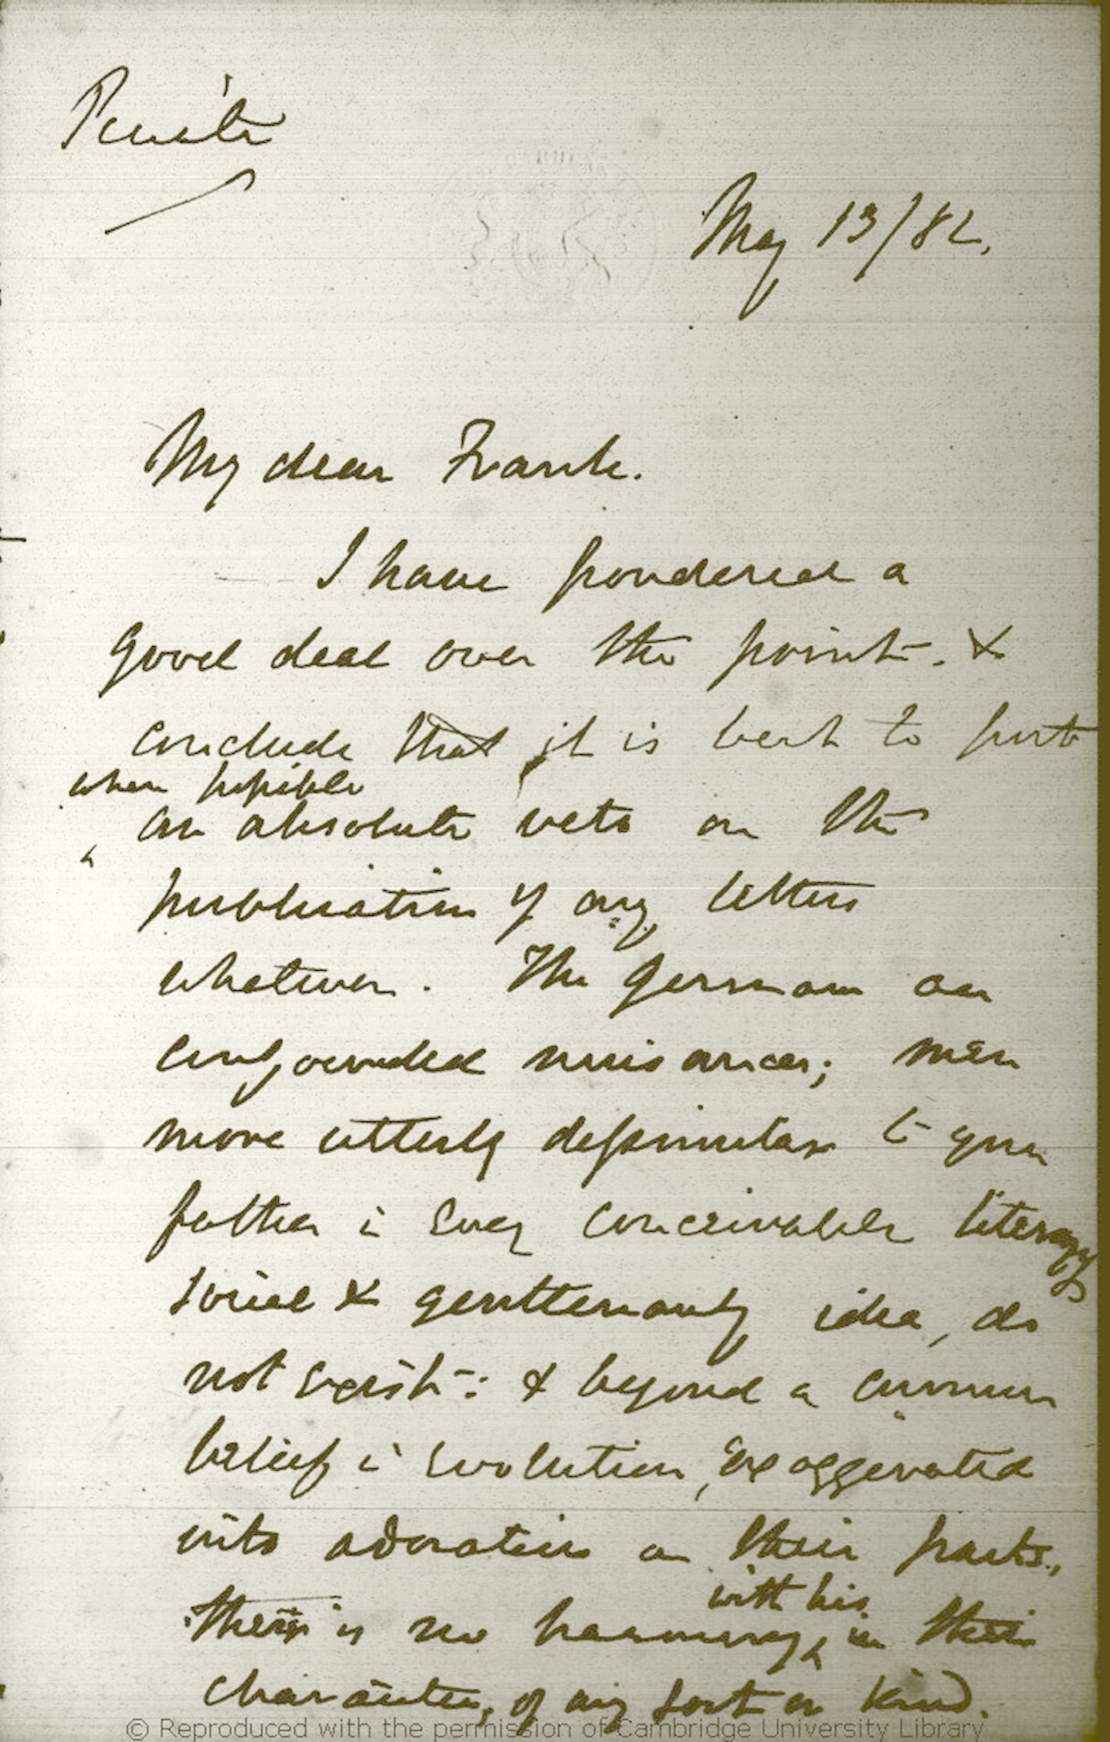 Private
May 13/82.
My dear Frank.
I have pondered a
good deal over the points. &
conclude that it is best to put
when possible
an absolute veto on the
publication of any letters
whatever. The Germans are
confounded nuisances; men
more utterly dissimilar to your
father in every conceivable literary
social & gentlemanly idea, do
not exist: & beyond a common
belief in Evolution, exaggerated
into adoration on their parts,
with his
there is no harmony, in their
characters, of any sort or kind.
© Reproduced with the permission of Cambridge University Library